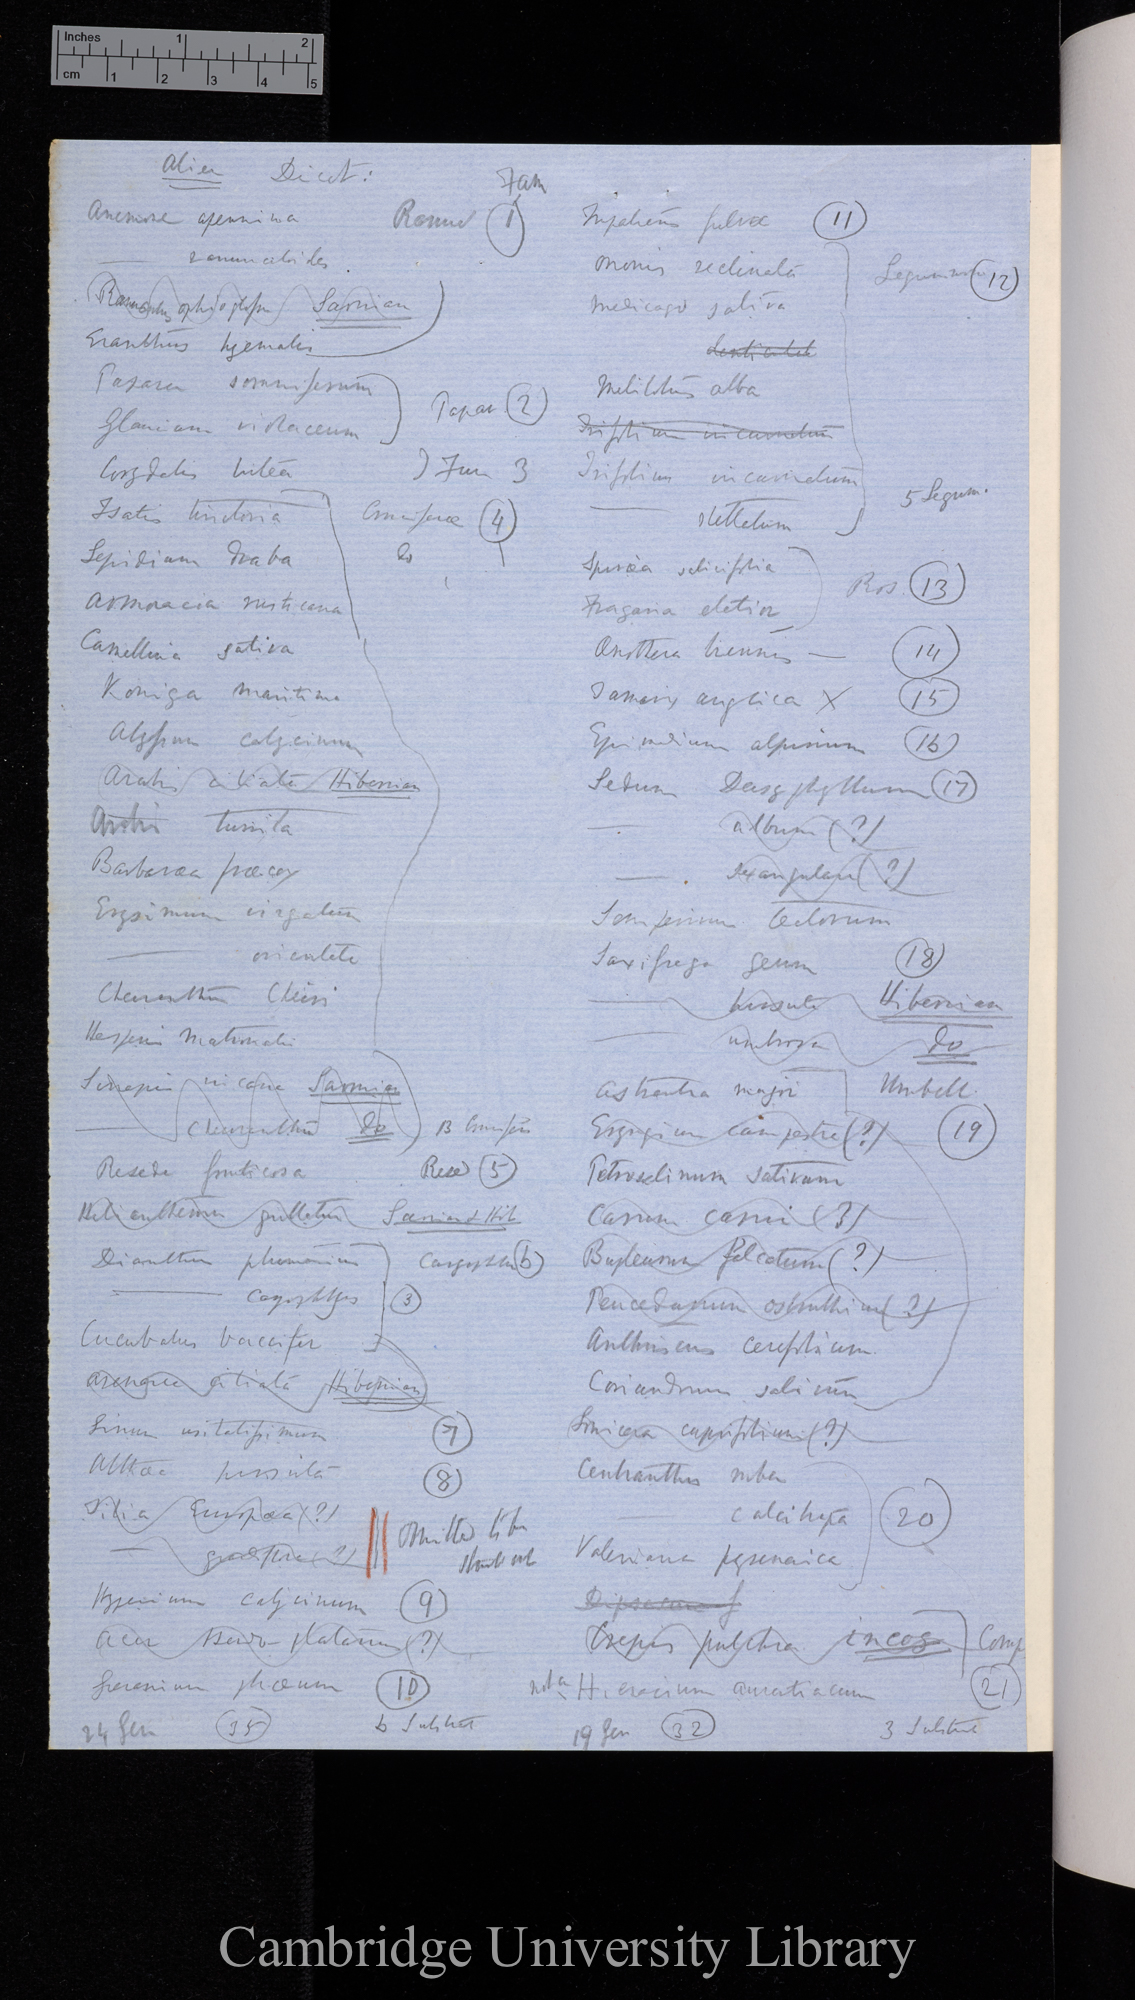 Inches 1 2
cm 1 2 3 4 5
Alien Dicot:
Fam
Anemone apennina Ranun 1
—— ranunculoides
Ranunculus ophiogloss Sarnian
Eranthus hyemalis
Papaver somniferum
Papav 2
Glaucium violaceum
Corydalis lutea ) Fum 3
Isatis tinctoria Cruciferæ 4
Lepidium Draba do
Armoracia rusticana
Camellina sativa
Koniga maritima
Alyssum calycinum
Arabis ciliata Hibernian
Arabis turrita
Barbaræa præcox
Erysimum virgatum
—— orientale
Cheiranthus Cheiri
Hesperis Matronalis
Sinapis incana Sarnian
—— Cheiranthus Do 13 Crucifers
Reseda fruticosa Rese 5
Helianthemum guttatum Sarnian & Hib
Dianthus plumarius Caryophs 6
—— caryophyllus 3
Cucubalus baccifer
Arenaria ciliata Hibernian
Linum usitatissimum 7
Althæa hirsuta 8
Tilia Europæa (?)
—— grandifolia (?)
Omitted
Hypericum calycinum 9
Acer Pseudo-platanus (?)
Geranium phæum 10
24 Gen 35 6 Subtract
Impatiens fulva 11
Ononis reclinata
Leguminosæ 12
Medicago sativa
denticulata
Melilotus alba
Trifolium incarnatum
Trifolium incarnatum
5 Legum.
—— stellatum
Spiræa salicifolia
Ros. 13
Fragaria elatior
Œnothera biennis — 14
Tamarix anglica X 15
Epimedium alpinum 16
Sedum Dasyphyllum 17
—— album (?)
—— sexangulare (?)
Sempervivum tectorum
Saxifraga geum 18
—— hirsuta Hibernian
—— umbrosa Do
Astrantia major Umbell.
Eryngium campestre (?) 19
Petroselinum sativum
Carum carui (?)
Bupleurum falcatum (?)
Peucedanum ostruthium (?)
Anthriscus cerefolium.
Coriandrum sativum
Lonicera caprifolium (?)
Centranthus ruber
—— calcitrapa 20
Valeriana pyrenaica
Dipsacus f
Crepis pulchra incog Comp
Hieracium aurantiacum 21
19 Gen 32 3 Subtract
Cambridge University Library